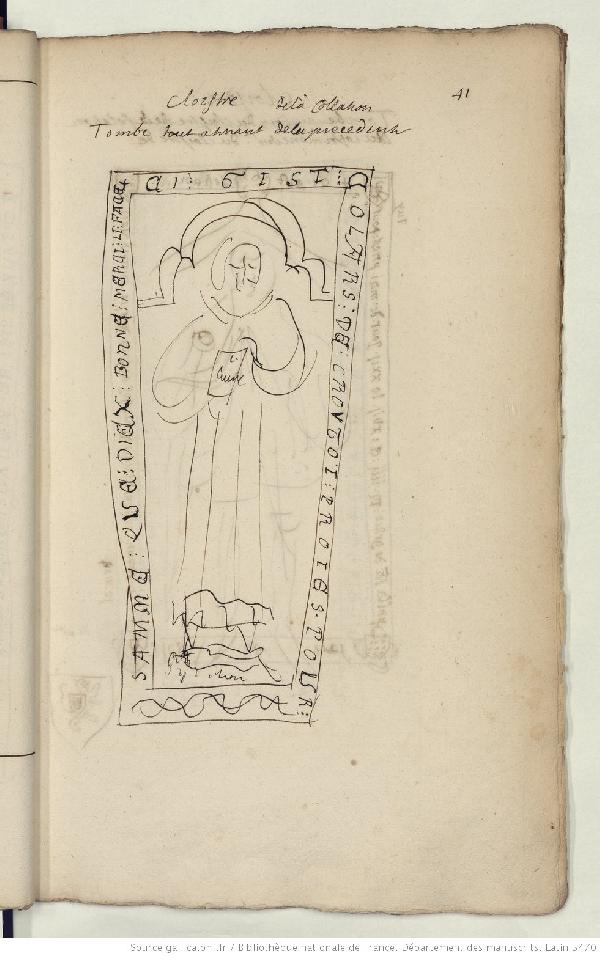 Cloistre de la Collation
41
Tombe tout devant de la precedente
CI : GIST :
COLARS : DE : CROVTOI : PROIES . POUR :
SAMME : QVE : DIEX : BONNE : MERCI : LI FACE
livre
chien
Source gallica.bnf.fr / Bibliothèque nationale de France. Département des manuscrits. Latin 5470